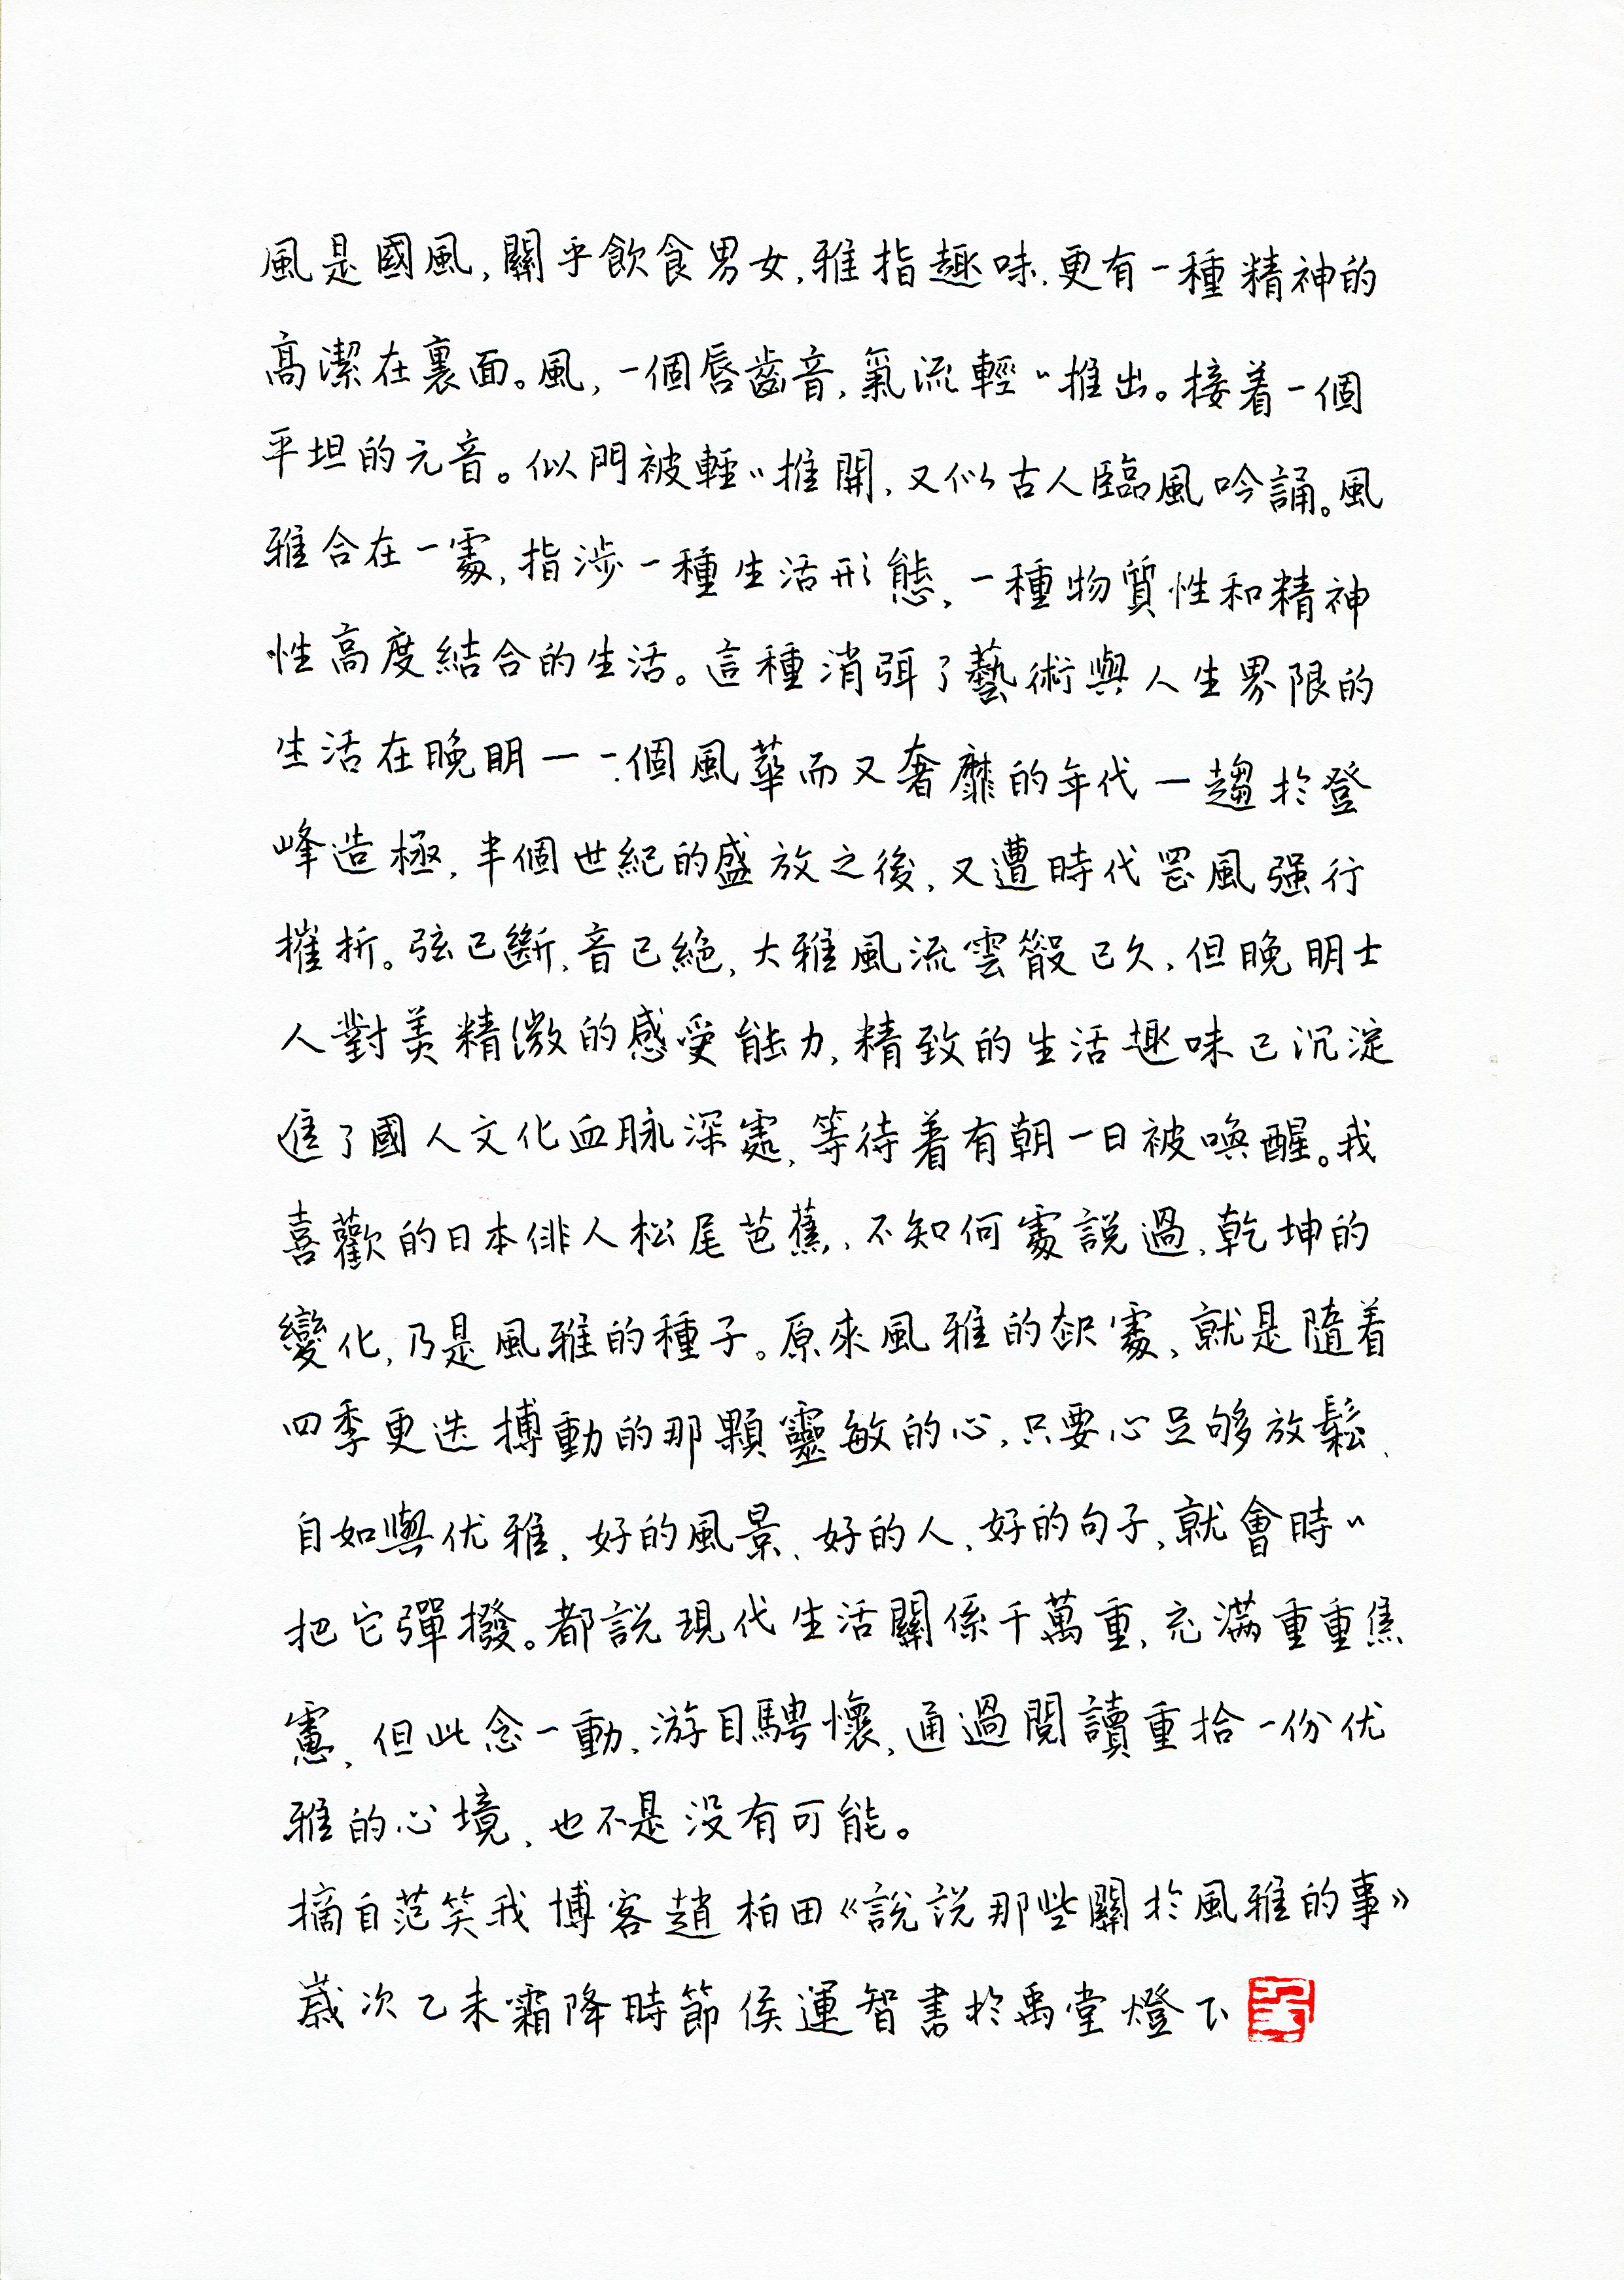 風是國風，關乎飲食男女，雅指趣味，更有一種精神的
高潔在裏面。風，一個唇齒音，氣流輕〻推出。接着一個
平坦的元音。似門被輕〻推開，又似古人臨風吟誦。風
雅合在一處，指涉一種生活形態，一種物質性和精神
性高度結合的生活。這種消弭了藝術與人生界限的
生活在晚明—一個風華而又奢靡的年代—趨於登
峰造極，半個世紀的盛放之後，又遭時代罡風强行
摧折。弦已斷，音已絶，大雅風流雲散已久，但晚明士
人對美精微的感受能力，精致的生活趣味已沉淀
進了國人文化血脉深處，等待着有朝一日被喚醒。我
喜歡的日本俳人松尾芭蕉，不知何處説過，乾坤的
變化，乃是風雅的種子。原來風雅的深處，就是隨着
四季更迭搏動的那顆靈敏的心，只要心足够放鬆、
自如與优雅，好的風景、好的人、好的句子，就會時〻
把它彈撥。都説現代生活關係千萬重，充滿重重焦
慮，但此念一動，游目騁懷，通過閲讀重拾一份优
雅的心境，也不是没有可能。
摘自范笑我博客趙柏田《說説那些關於風雅的事》
歲次乙未霜降時節侯運智書於禹堂燈下